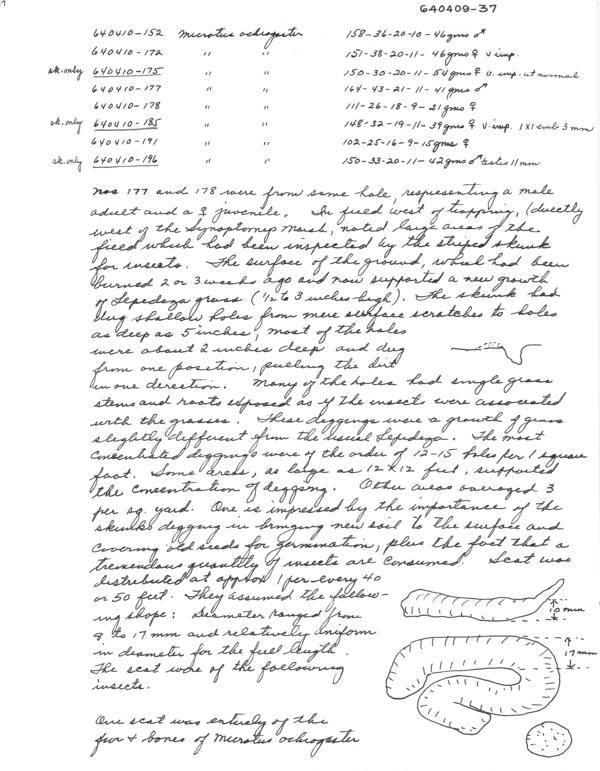 640409-37
640410-152 Microtus ochrogaster 158-36-20-10-46gms ♂
640410-172 " " 151-38-20-11-46gms ♀ v imp.
sk. only 640410-175 " " 150-30-20-11-54gms ♀ v. imp. ut normal
640410-177 " " 164-43-21-11-41gms ♂
640410-178 " " 111-26-18-9-21gms ♀
sk. only 640410-185 " " 148-32-19-11-39gms ♀ v. imp. 1x1 emb 3 mm
640410-191 " " 102-25-16-9-15gms ♀
sk. only 640410-196 " " 150-33-20-11-42gms ♂ testis 11mm
nos 177 and 178 were from same hole, respresenting a male
adult and a ♀ juvenile. In field west of trapping, (directly
west of the Synaptomys marsh, noted large areas of the
field which had been inspected by the striped skunk
for insects. The surface of the ground, which had been
burned 2 or 3 weeks ago and now supported a new growth
of Lepedeza grass (1/2 to 3 inches high). The skunk had
dug shallow holes from mere surface scratches to holes
as deep as 5 inches, most of the holes
were about 2 inches deep and dug
from one position, pulling the dirt
in one direction. Many of the holes had single grass
stems and roots exposed as if the insects were associated
with the grasses. These diggings were a growth of grass
slightly different from the usual Lepedeza. The most
concentrated diggings were of the order of 12-15 holes per 1 square
foot. Some areas, as large as 12 x 12 feet, supported
the concentration of digging. Other areas averaged 3
per sq. yard. One is impressed by the importance of the
skunks digging in bringing new soil to the surface and
covering old seeds for germination, plus the fact that a
tremendous quantity of insects are consumed. Scat was
distributed at approx 1 per every 40
or 50 feet. They assumed the follow-
ing shape: Diameter ranged from
8 to 17 mm and relatively uniform
in diameter for the full length.
The scat were of the following
insects.
10 mm
17 mm
One scat was entirely of the
fur & bones of Microtus ochrogaster